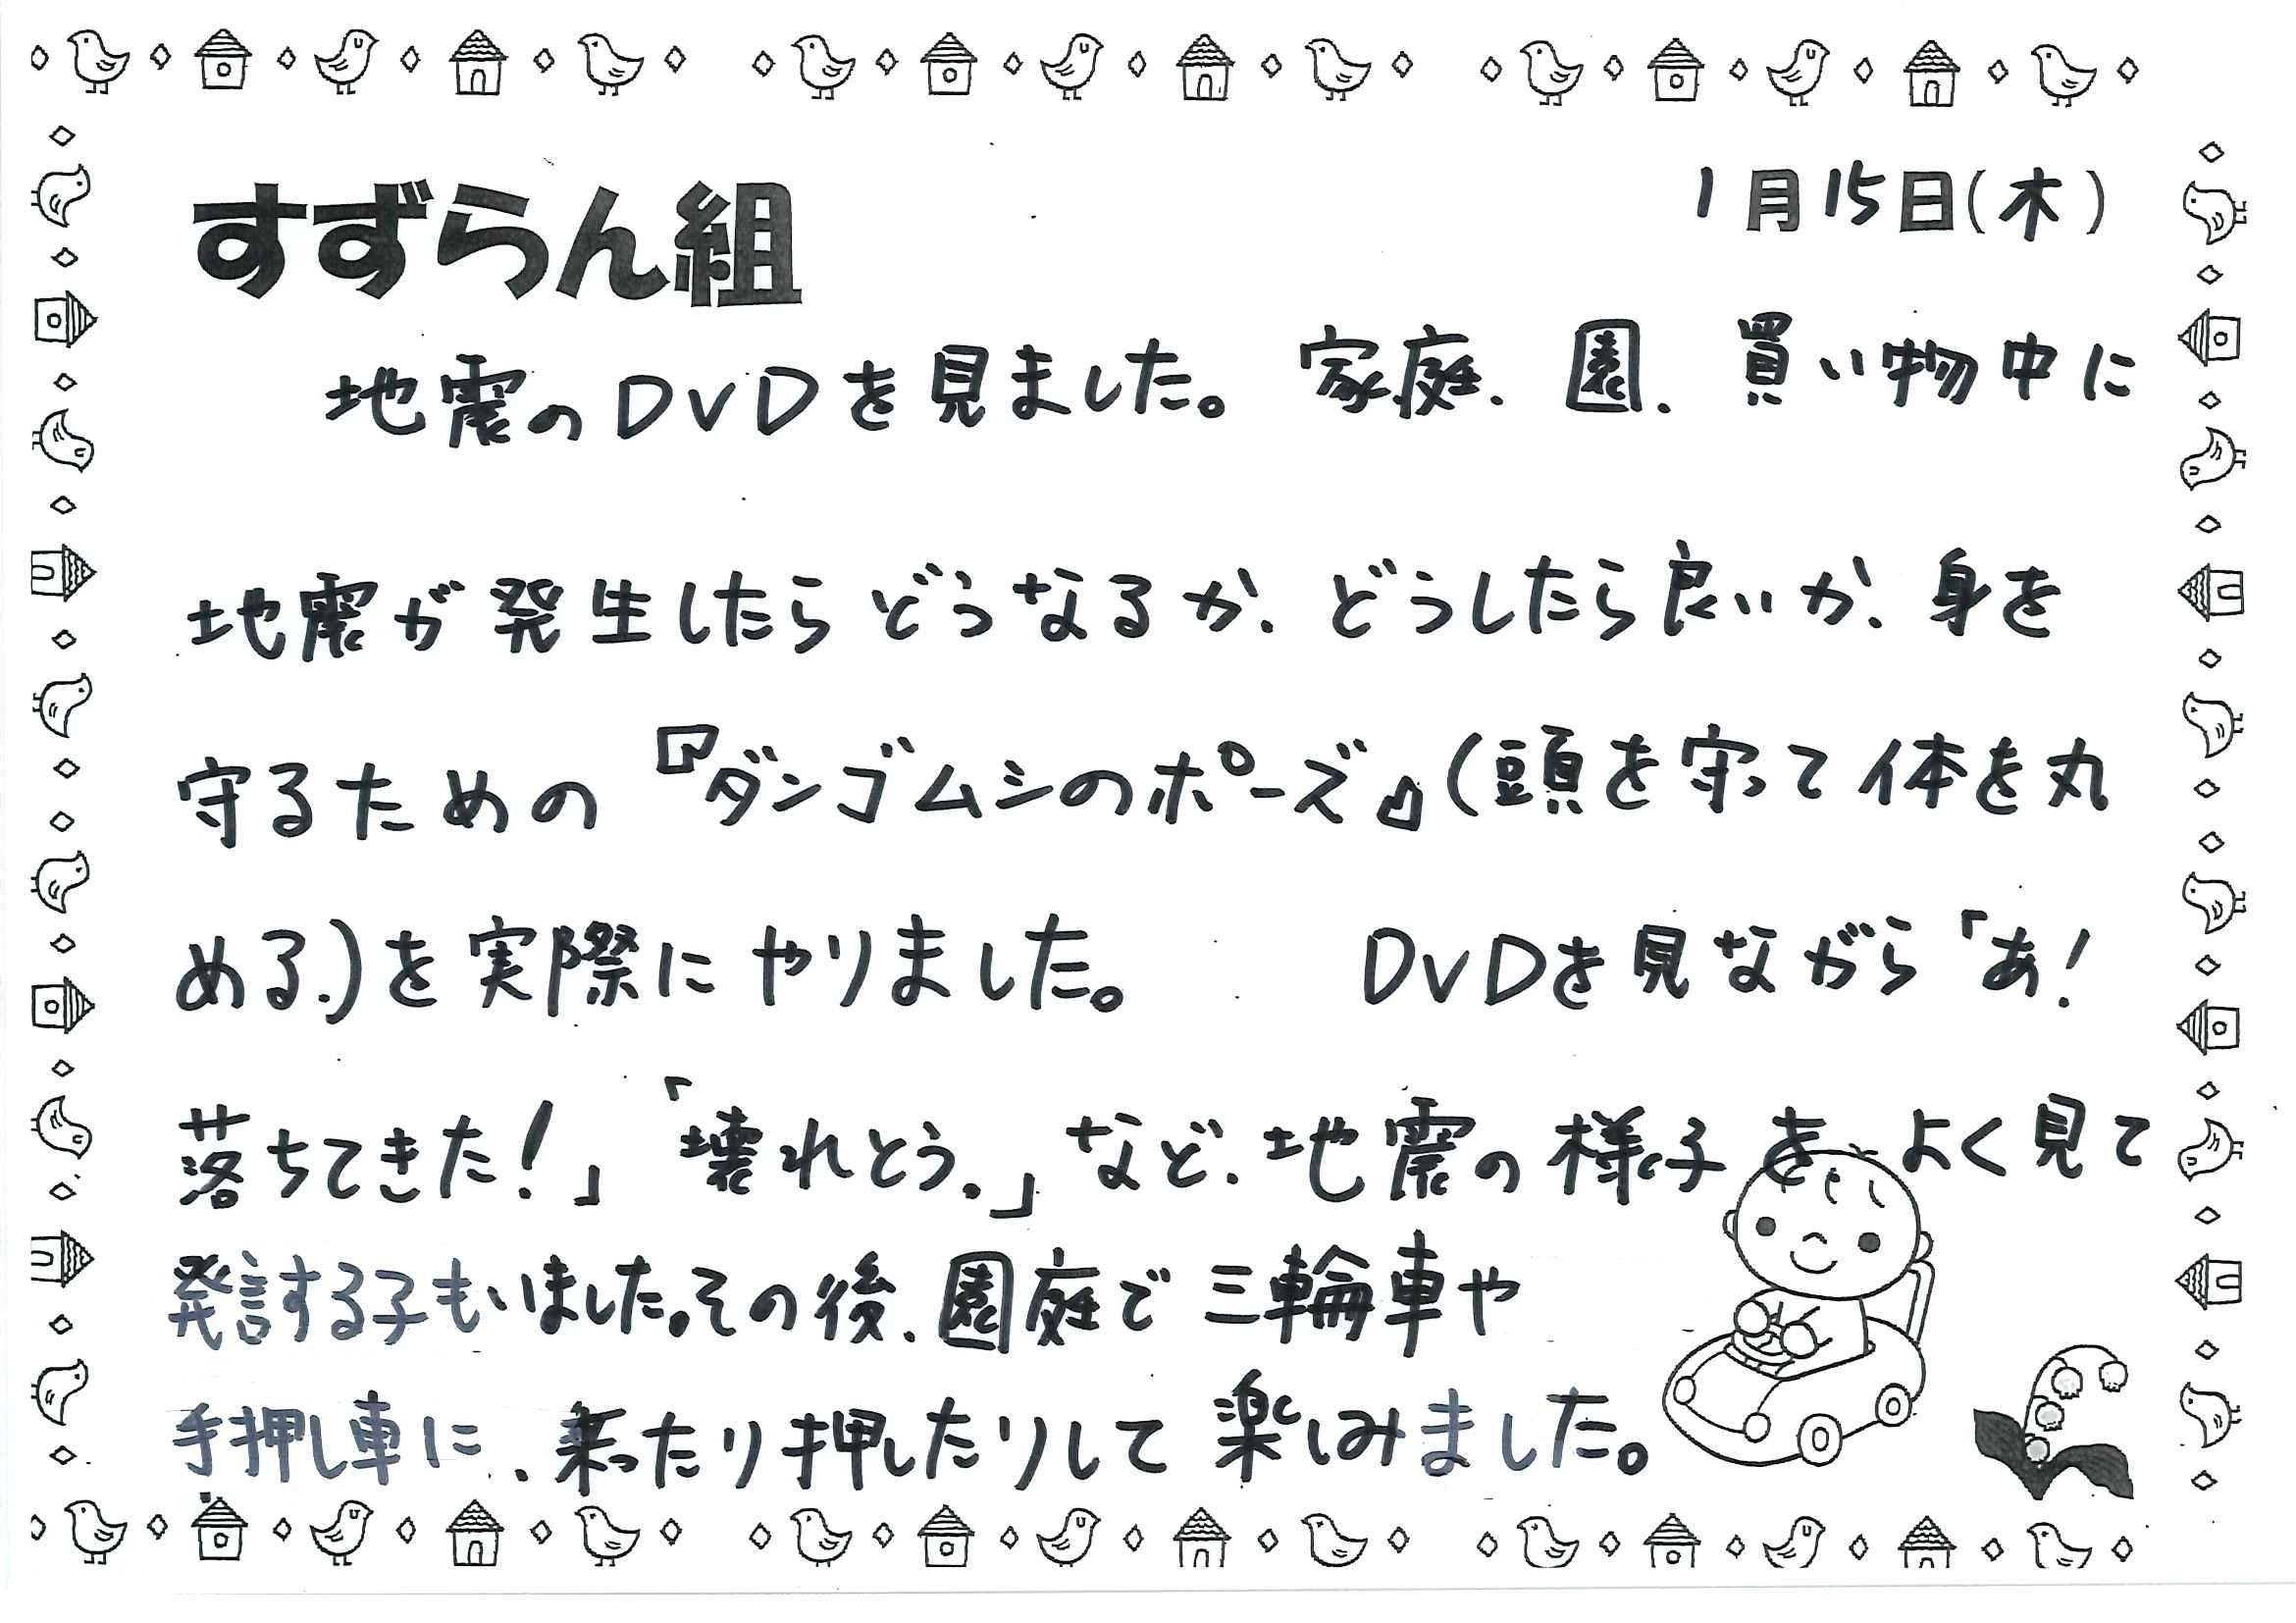 すずらん組
1月15日(木)
地震のDVDを見ました。家庭、園、買い物中に
地震が発生したらどうなるか、どうしたら良いか、身を
守るための『ダンゴムシのポーズ』(頭を守って体を丸
める。)を実際にやりました。 DVDを見ながら「あ!
落ちてきた!」「壊れとう。」など、地震の様子をよく見て
発言する子もいました。その後、園庭で三輪車や
手押し車に、乗ったり押したりして楽しみました。